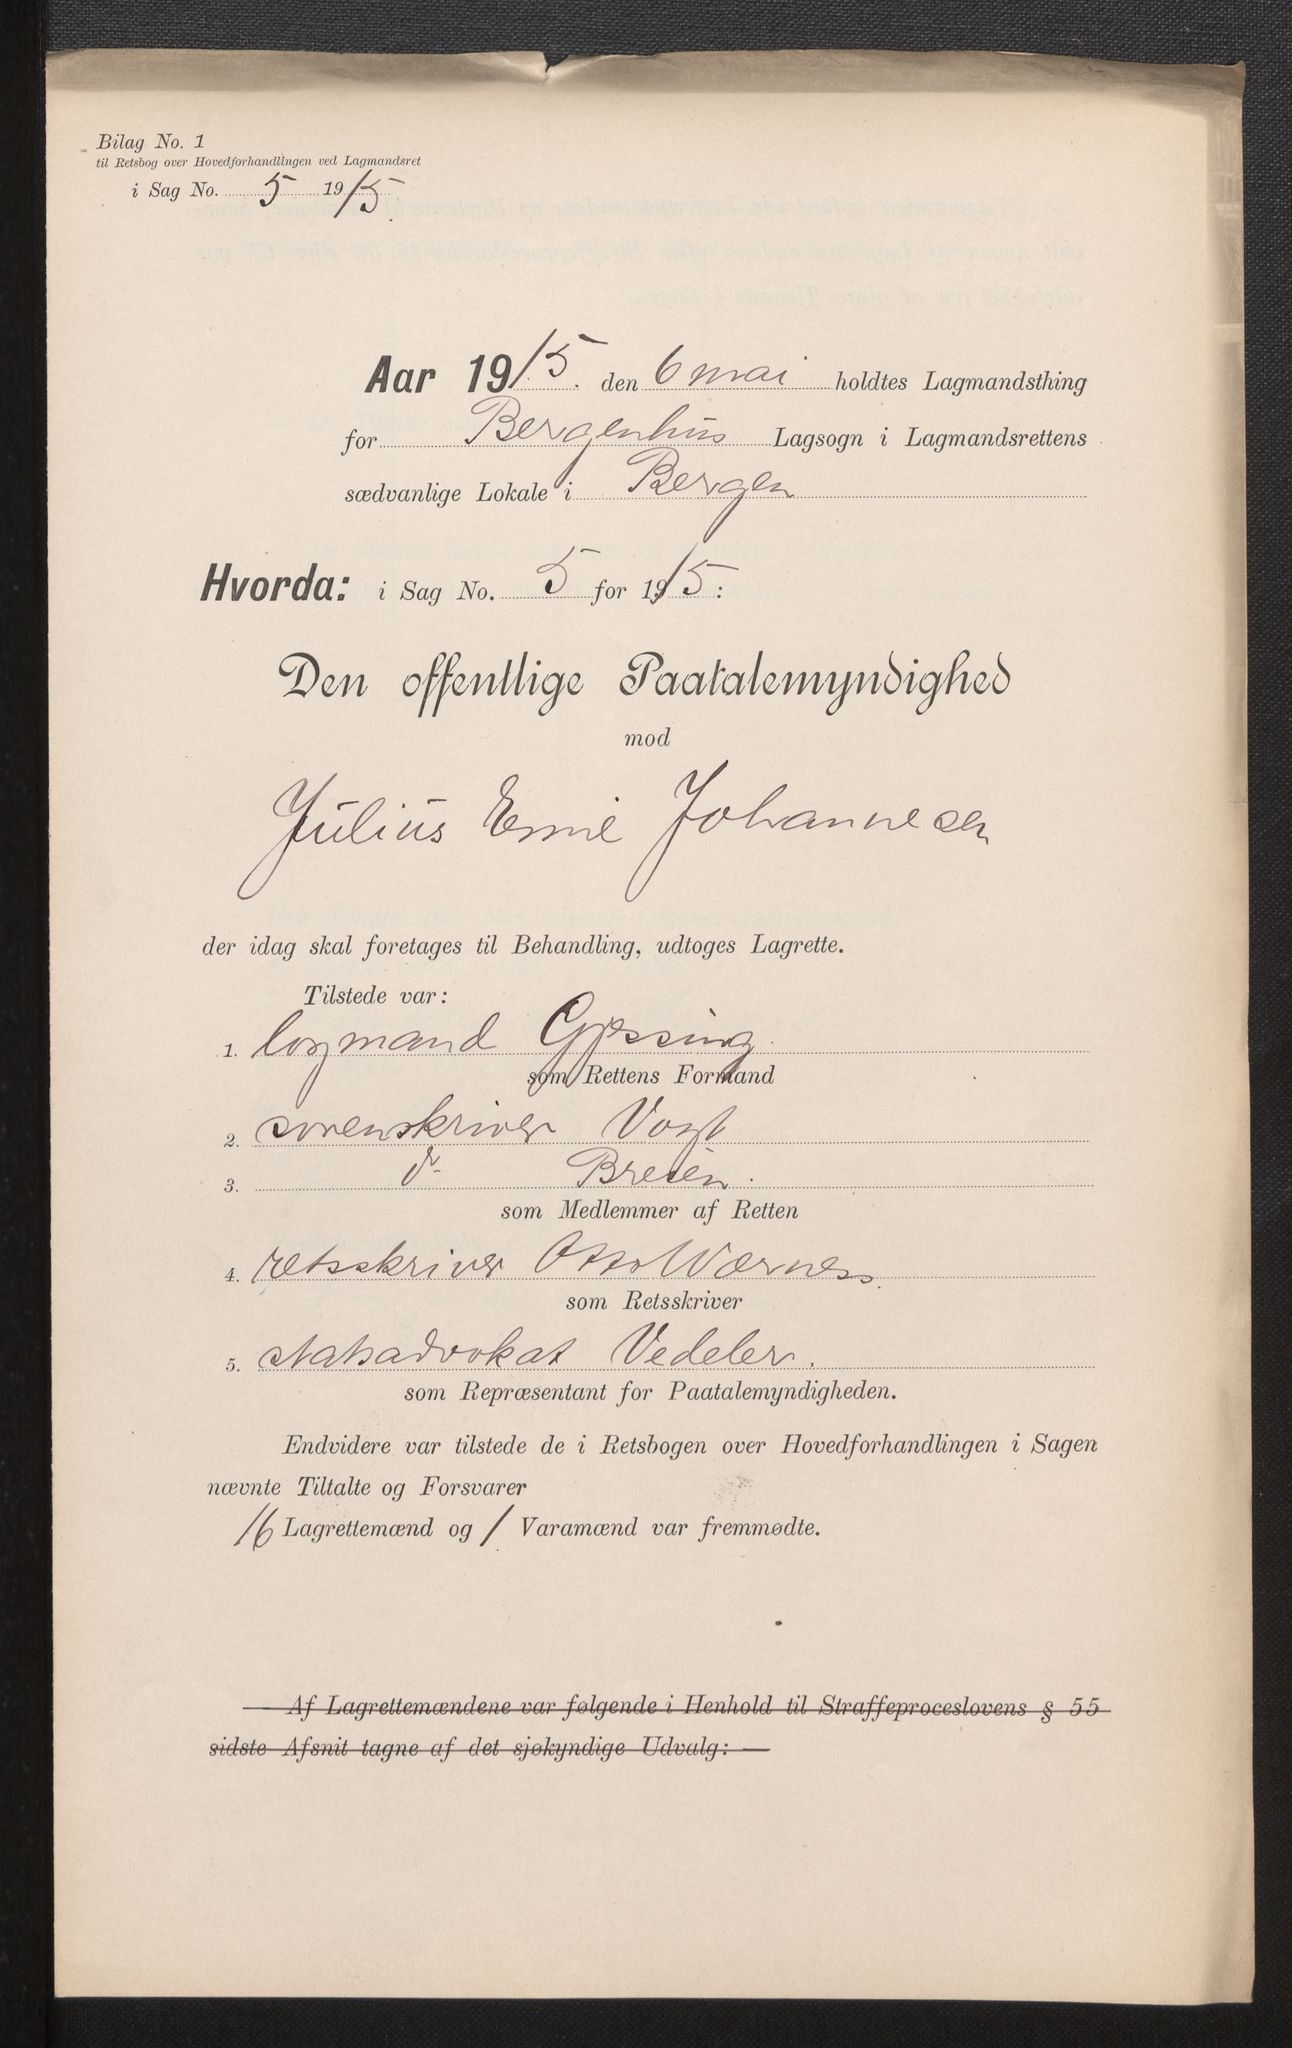 Bilag No. 1
til Retsbog over Hovedforhandlingen ved Lagmandsret
i Sag No. 5 1915.
Aar 1915. den 6 mai holdtes Lagmandsthing
for Bergenhus Lagsogn i Lagmandsrettens
sædvanlige Lokale i Bergen
Hvorda: i Sag No. 5 for 1915:
Den offentlige Paatalemyndighed
mod
Julius Emil Johannesen
der idag skal foretages til Behandling, udtoges Lagrette.
Tilstede var:
1. lagmand Gjessing.
som Rettens Formand
2. sorenskriver Vogt
3. do Breien.
som Medlemmer af Retten
4. retsskriver Otto Wærness.
som Retsskriver
5. statsadvokat Vedeler.
som Repræsentant for Paatalemyndigheden.
Endvidere var tilstede de i Retsbogen over Hovedforhandlingen i Sagen
nævnte Tiltalte og Forsvarer
16 Lagrettemænd og 1 Varamænd var fremmødte.
Af Lagrettemændene var følgende i Henhold til Straffeproceslovens § 55
sidste Afsnit tagne af det sjøkyndige Udvalg: